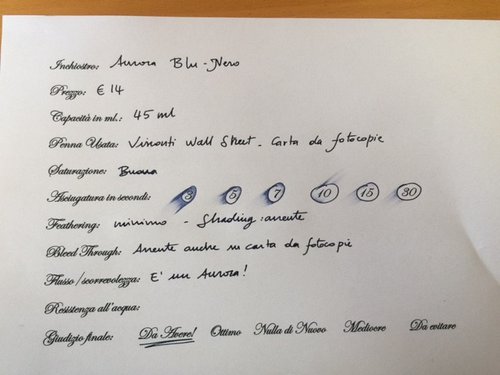 Inchiostro: Aurora Blu-Nero
Prezzo: € 14
Capacità in ml.: 45 ml
Penna Usata: Visconti Wall Street - Carta da fotocopie
Saturazione: Buona
Asciugatura in secondi: 3 5 7 10 15 30
Feathering: minimo - Shading: assente
Bleed Through: Assente anche su carta da fotocopie
Flusso/scorrevolezza: E' un Aurora!
Resistenza all'acqua:
Giudizio finale: Da Avere! Ottimo Nulla di Nuovo Mediocre Da evitare